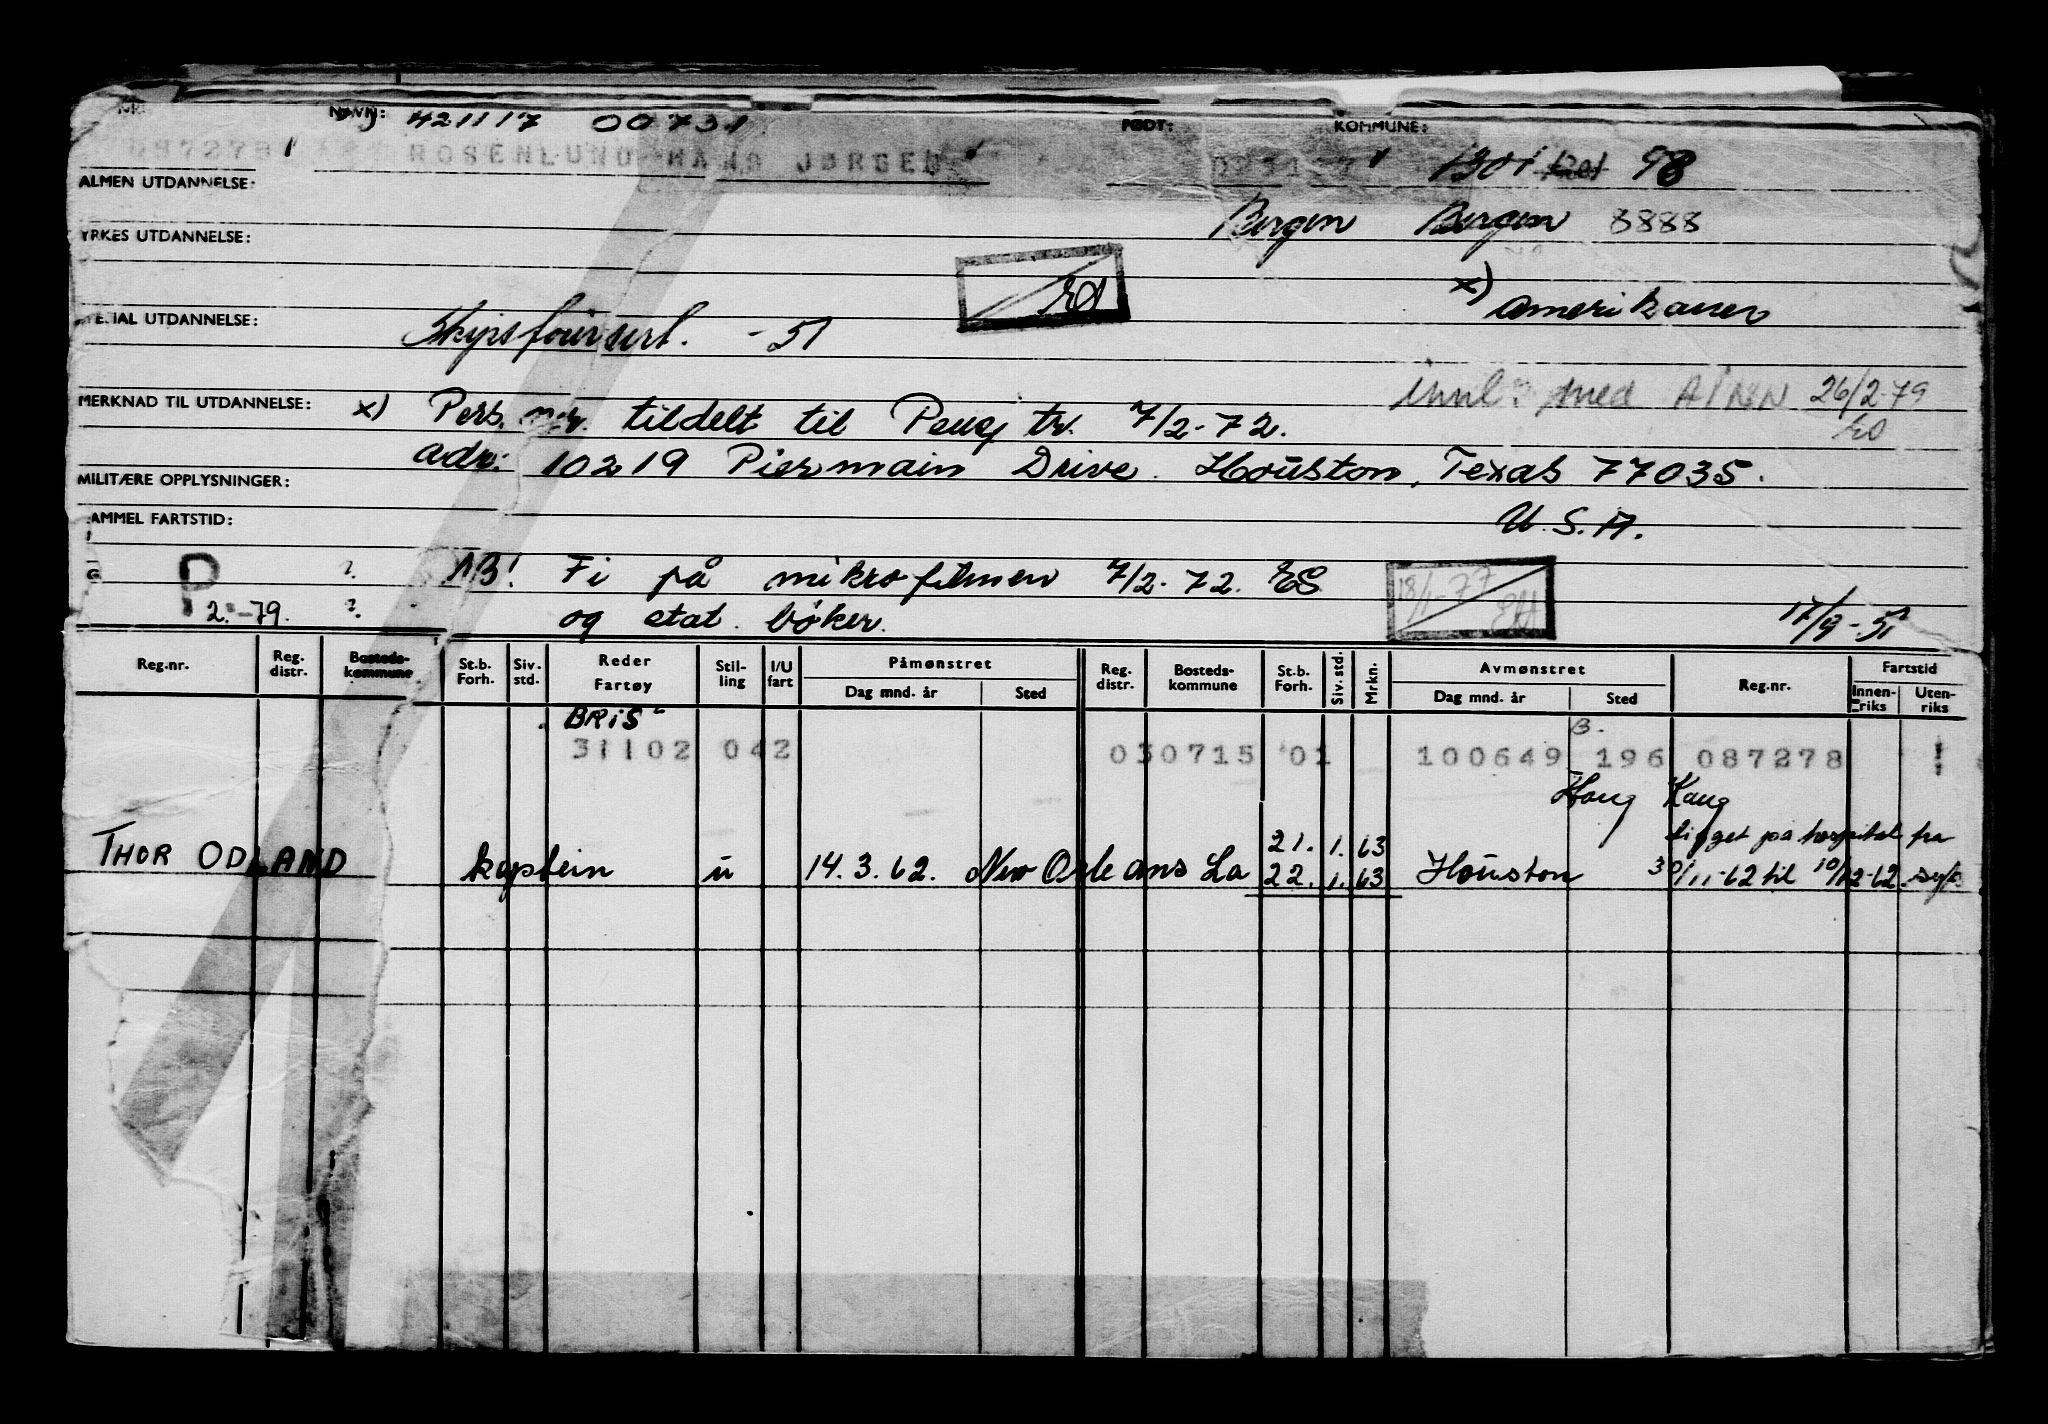 NAVN: 421117 00731 FØDT: KOMMUNE:
087278 ROSENLUND HANS JØRGEN 1301 98
ALMEN UTDANNELSE:
Bergen Bergen 8888
YRKES UTDANNELSE:
x) Amerikaner
SPESIAL UTDANNELSE:
-51
med 26/2-79
MERKNAD TIL UTDANNELSE: x) Pers. nr. tildelt til Pensj tr. 7/2-72.
Adr: 10219 Piermain Drive. Houston, Texas 77035.
MILITÆRE OPPLYSNINGER:
U.S.A.
GAMMEL FARTSTID:
P ? NB! Fi på mikrofilmen 7/2-72. ES 18/1-77
2.-79. ? og stat. bøker. 17/9-51
Reg.nr. Reg. distr. Bosteds-kommune St.b. Forh. Siv. std. Reder Fartøy Stil-ling I/U fart Påmønstret Dag mnd. år Sted Reg. distr. Bosteds-kommune St.b. Forh. Siv. std. Mrkn. Avmønstret Dag mnd. år Sted Reg.nr. Fartstid Innen-riks Uten-riks
BRIS
31102 042 030715 01 100649 196 087278
Hong Kong
21. 1. 63 ligget på hospital fra
THOR ODLAND kaptein u 14.3.62. New Orleans La 22. 1. 63 Houston 30/11-62 til 10/12-62.